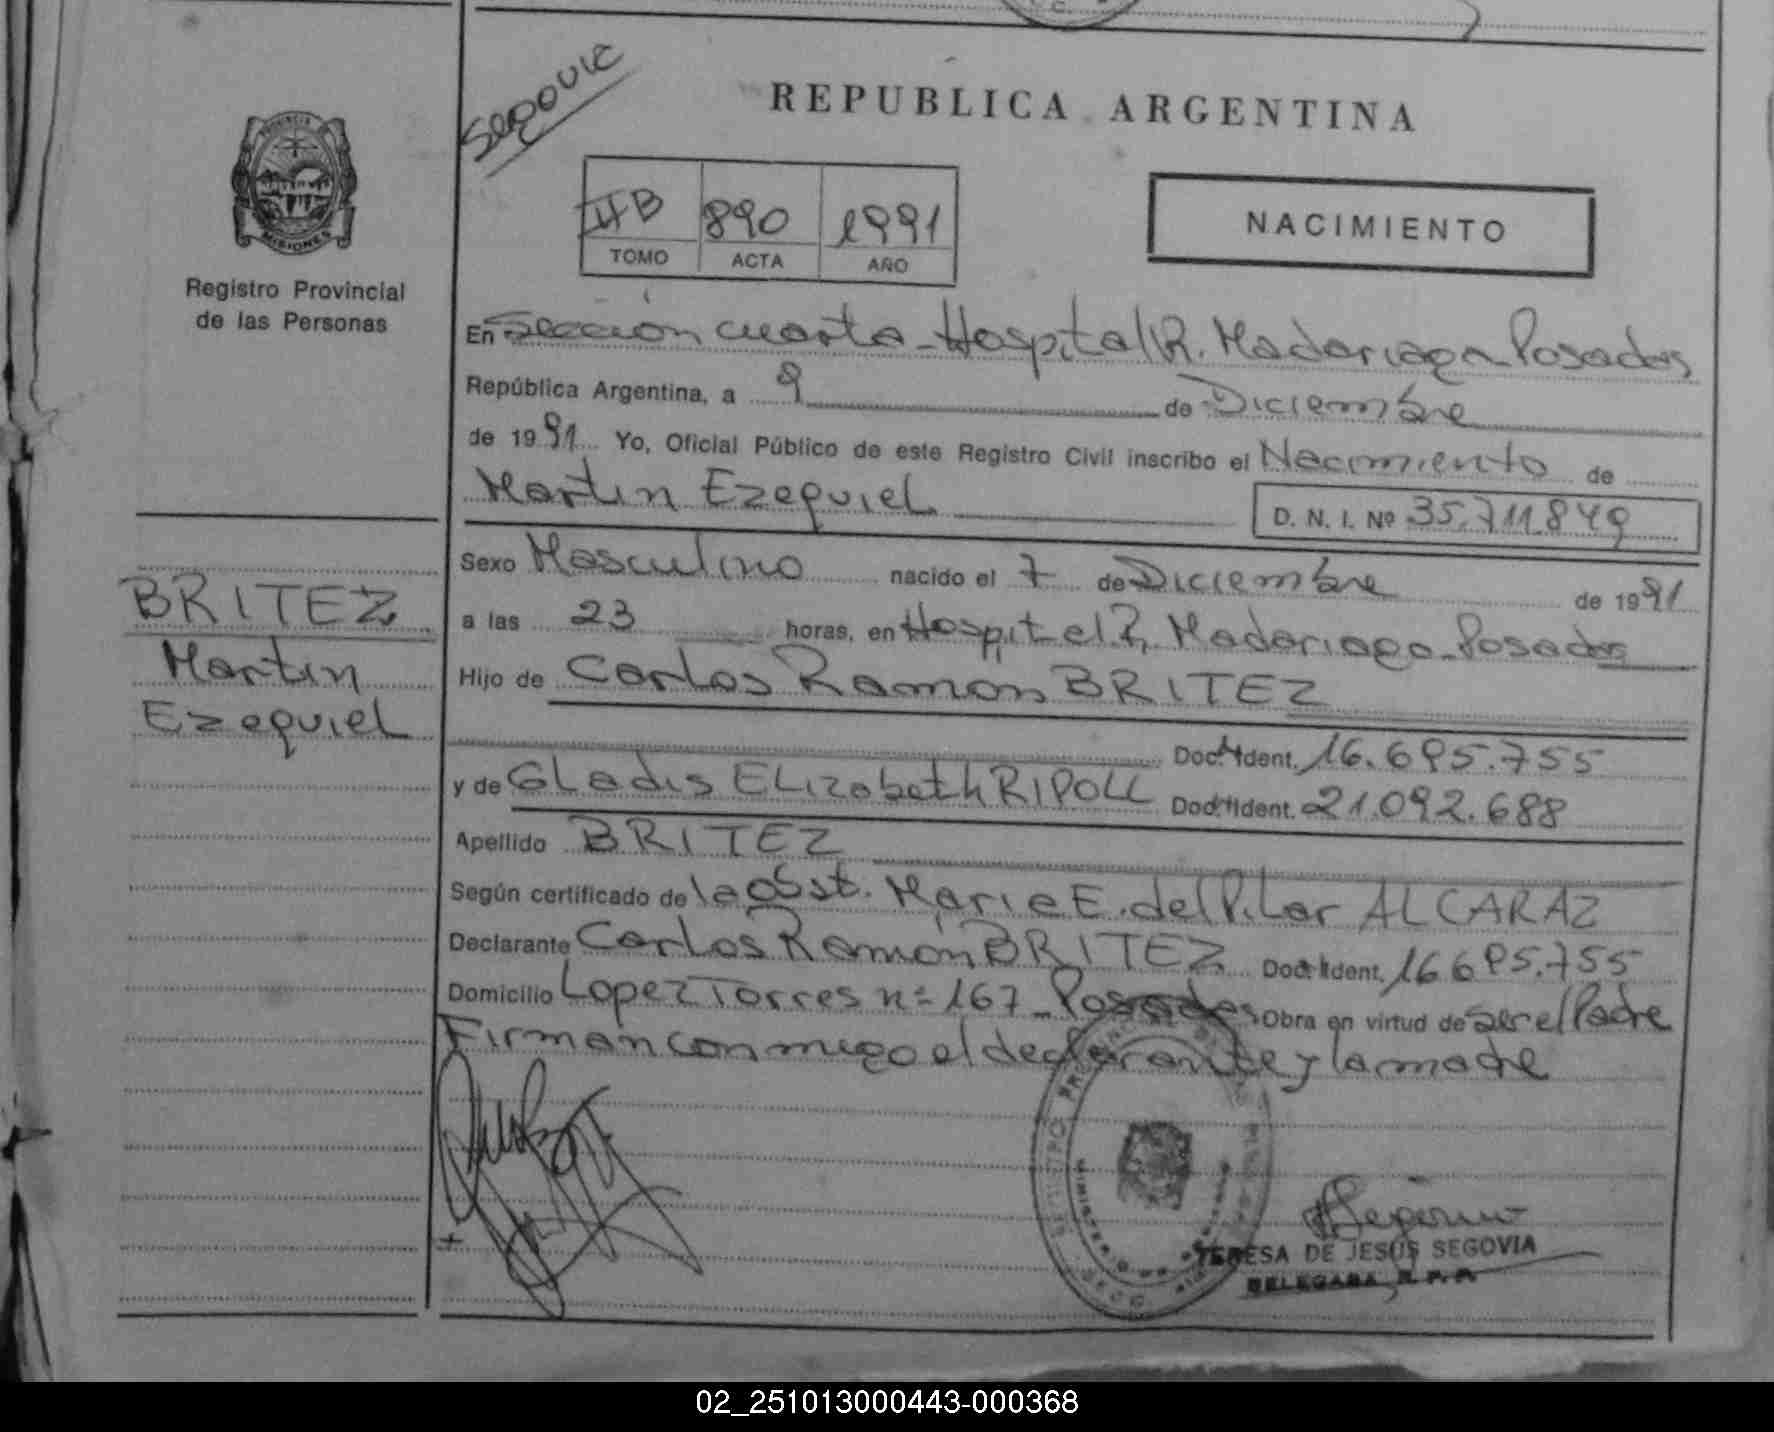 Segovia
REPUBLICA ARGENTINA
PROVINCIA
MISIONES
Registro Provincial
de las Personas
4B 890 1991
TOMO ACTA AÑO
NACIMIENTO
En Sección cuarta - Hospital R. Madariaga - Posadas
República Argentina, a 9 de Diciembre
de 1991 Yo, Oficial Público de este Registro Civil inscribo el Nacimiento de
Martin Ezequiel D. N. I. Nº 35.711.849
BRITEZ
Martin
Ezequiel
Sexo Masculino nacido el 7 de Diciembre de 1991
a las 23 horas, en Hospital R. Madariaga - Posadas
Hijo de Carlos Ramón BRITEZ
Doc. Ident. 16.695.755
y de Gladis Elizabeth RIPOLL Doc. Ident. 21.092.688
Apellido BRITEZ
Según certificado de la obst. Maria E. del Pilar ALCARAZ
Declarante Carlos Ramón BRITEZ Doc. Ident. 16.695.755
Domicilio Lopez Torres nº 167 - Posadas Obra en virtud de ser el Padre
Firman conmigo el declarante y la madre
TERESA DE JESUS SEGOVIA
DELEGADA R.P.P.
02_251013000443-000368